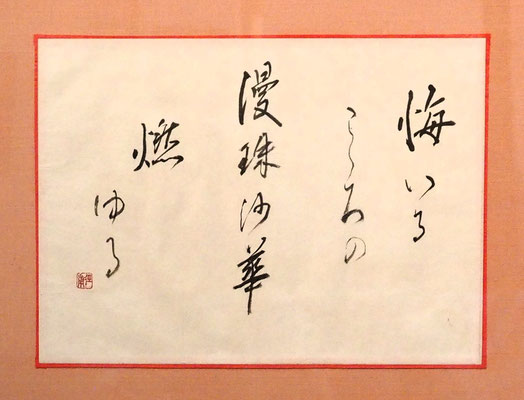 悔いる
こころの
曼珠沙華
燃
ゆる